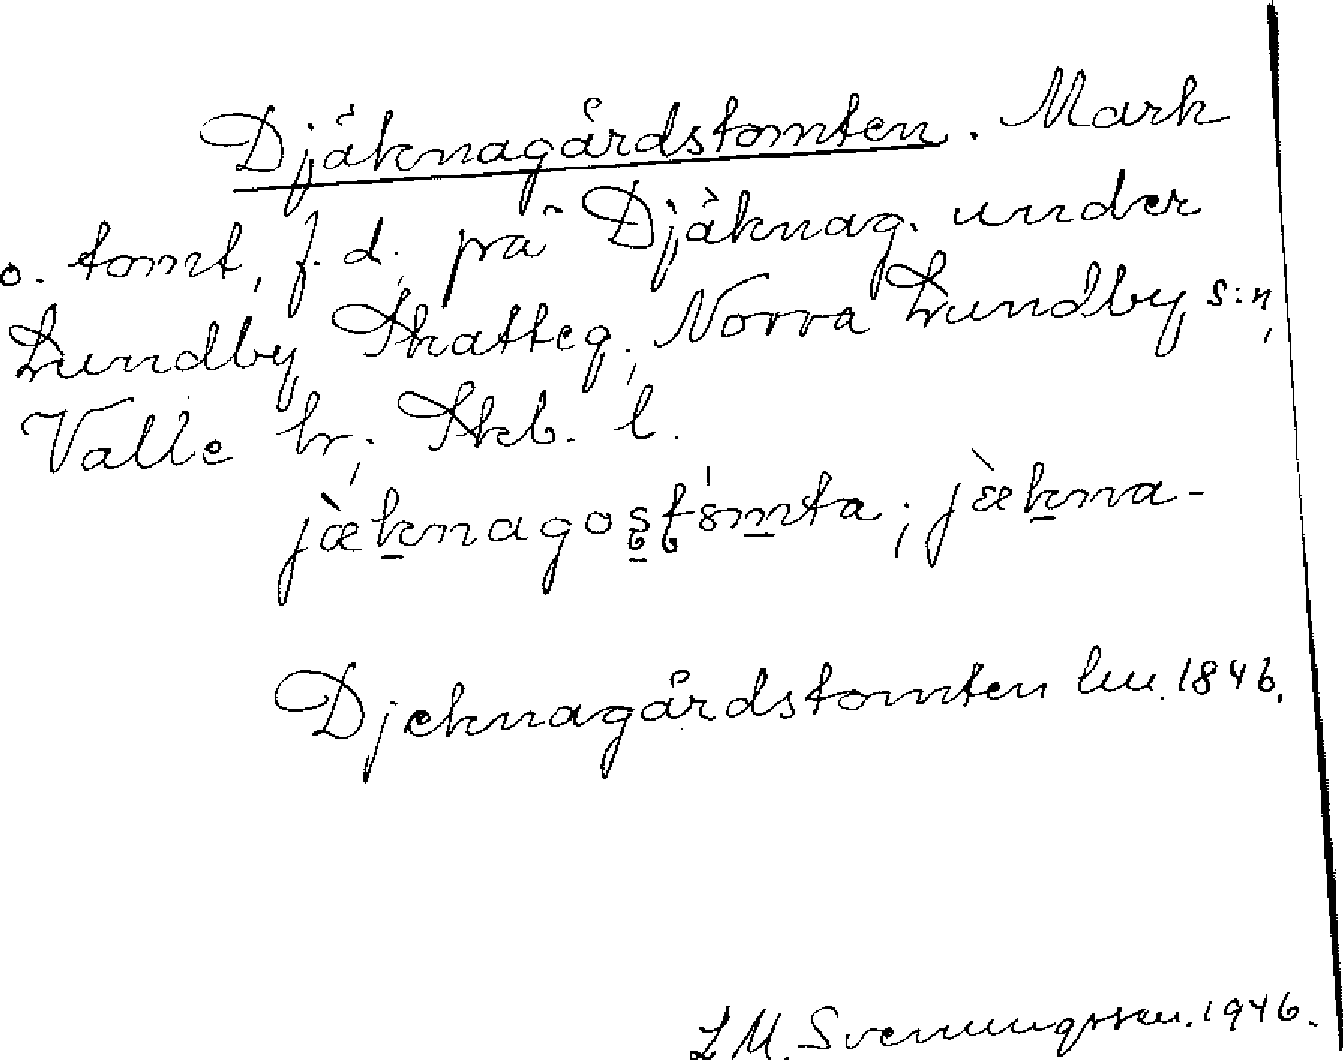 Djäknagårdstomten. Mark
o. tomt, f. d. på Djäknag. under
Lundby Skatteg., Norra Lundby s:n,
Valle hr, Skb. l.
jæ̀knagoştómta; jæ̀kna-
Djeknagårdstomten lm. 1846.
L M. Svenungsson. 1946.